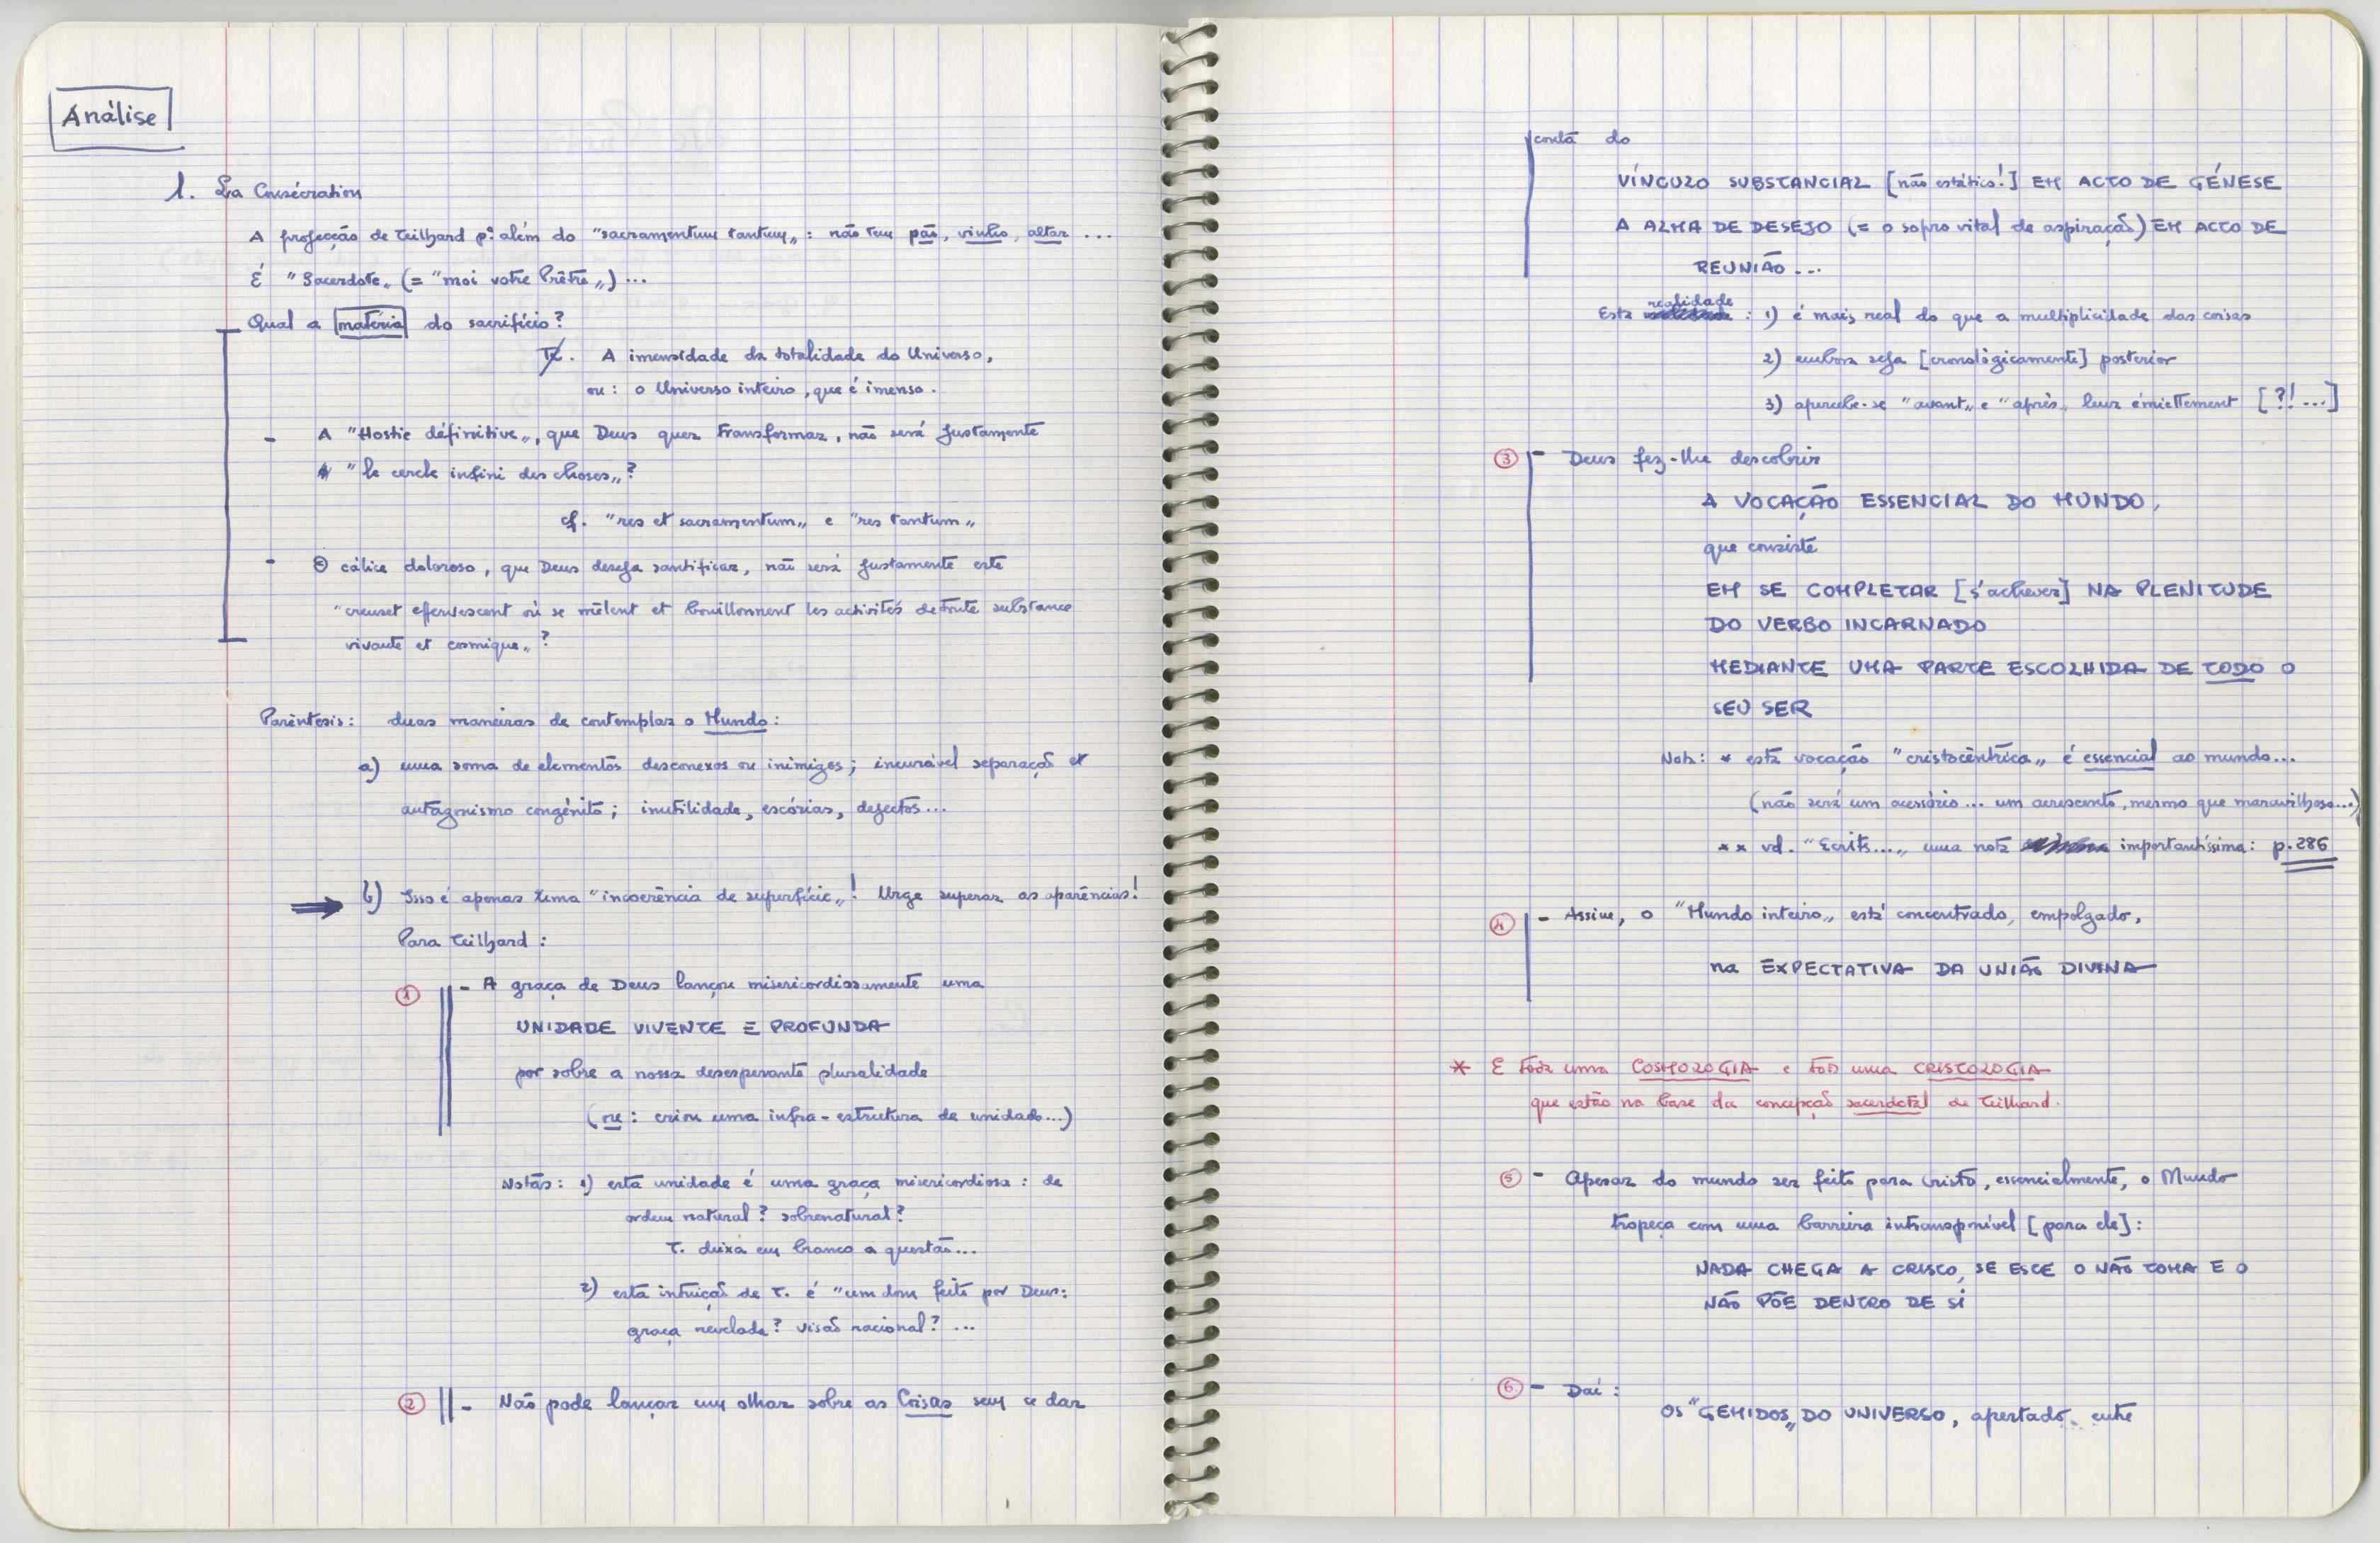 Análise
1. La Consécration
A projecção de Teilhard pª além do "sacramentum tantum„ : não tem pão, vinho, altar ...
É "Sacerdote„ (= "moi votre Prêtre„) ...
Qual a matéria do sacrifício?
R. A imensidade da totalidade do Universo,
ou : o Universo inteiro, que é imenso.
- A "Hostie définitive„, que Deus quer transformar, não será justamente
"le cercle infini des choses„ ?
cf. "res et sacramentum„ e "res tantum„
- O cálice doloroso, que Deus deseja santificar, não será justamente este
"creuset effervescent où se mêlent et bouillonnent les activités de toute substance
vivante et cosmique„ ?
Parêntesis : duas maneiras de contemplar o Mundo :
a) uma soma de elementos desconexos ou inimigos ; incurável separação et
antagonismo congénito ; inutilidade, escórias, defectos...
b) Isso é apenas uma "incoerência de superfície„ ! Urge superar as aparências!
Para Teilhard :
1 - A graça de Deus lançou misericordiosamente uma
UNIDADE VIVENTE E PROFUNDA
por sobre a nossa desesperante pluralidade
(ou : criou uma infra-estrutura de unidade...)
Notas : 1) esta unidade é uma graça misericordiosa : de
ordem natural ? sobrenatural ?
T. deixa em branco a questão...
2) esta intuição de T. é "um dom feito por Deus:
graça revelada ? visão racional ? ...
2 - Não pode lançar um olhar sobre as Coisas sem se dar
conta do
VÍNCULO SUBSTANCIAL [não estático!] EM ACTO DE GÉNESE
A ALMA DE DESEJO (= o sopro vital de aspiração) EM ACTO DE
REUNIÃO ...
Esta realidade : 1) é mais real do que a multiplicidade das coisas
2) embora seja [cronològicamente] posterior
3) apercebe-se "avant„ e "après„ leur émiettement [?!...]
3 - Deus fez-lhe descobrir
A VOCAÇÃO ESSENCIAL DO MUNDO,
que consiste
EM SE COMPLETAR [s'achever] NA PLENITUDE
DO VERBO INCARNADO
MEDIANTE UMA PARTE ESCOLHIDA DE TODO O
SEU SER
Nota : * esta vocação "cristocêntrica„ é essencial ao mundo...
(não será um acessório ... um acrescento, mesmo que maravilhoso...)
** vd. "Ecrits...„ uma nota importantíssima : p. 286
4 - Assim, o "Mundo inteiro„ está concentrado, empolgado,
na EXPECTATIVA DA UNIÃO DIVINA
* É toda uma COSMOLOGIA e toda uma CRISTOLOGIA
que estão na base da concepção sacerdotal de Teilhard.
5 - Apesar do mundo ser feito para Cristo, essencialmente, o Mundo
tropeça com uma barreira intransponível [para ele] :
NADA CHEGA A CRISTO, SE ESTE O NÃO TOMA E O
NÃO PÕE DENTRO DE SI
6 - Daí :
OS "GEMIDOS„ DO UNIVERSO, apertado entre